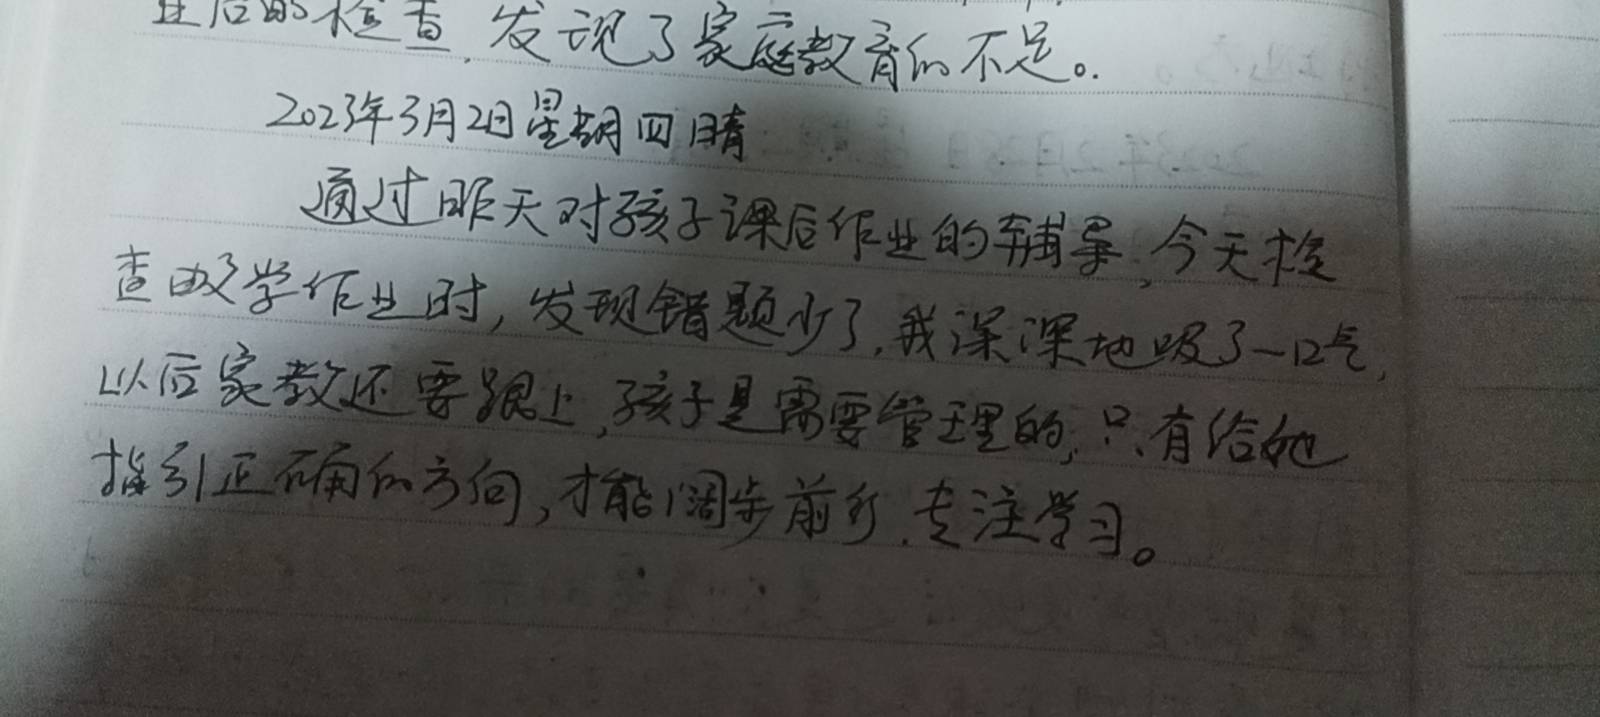 业后的检查,发现了家庭教育的不足。
2023年3月2日星期四晴
通过昨天对孩子课后作业的辅导,今天检
查数学作业时,发现错题少了,我深深地吸了一口气,
以后家教还要跟上,孩子是需要管理的,只有给她
指引正确的方向,才能阔步前行.专注学习。